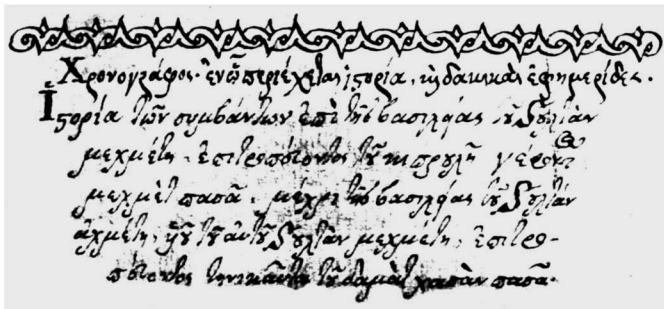 Χρονογράφος· ἐν ᾧ περιέχεται ἱστορία, καὶ δακικαὶ ἐφημερίδες.
Ἱστορία τῶν συμβάντων ἐπὶ τῆς βασιλείας τοῦ Σουλτὰν
μεχμέτη, ἐπιτροπεύοντος τοῦ κιπρουλῆ
μεχμὲτ πασᾶ, μέχρι τῆς βασιλείας τοῦ Σουλτὰν
ἀχμέτη, υἱοῦ τοῦ αὐτοῦ Σουλτὰν μεχμέτη, ἐπιτρο-
πεύοντος τηνικαῦτα τοῦ δαμὰτ χασὰν πασᾶ.